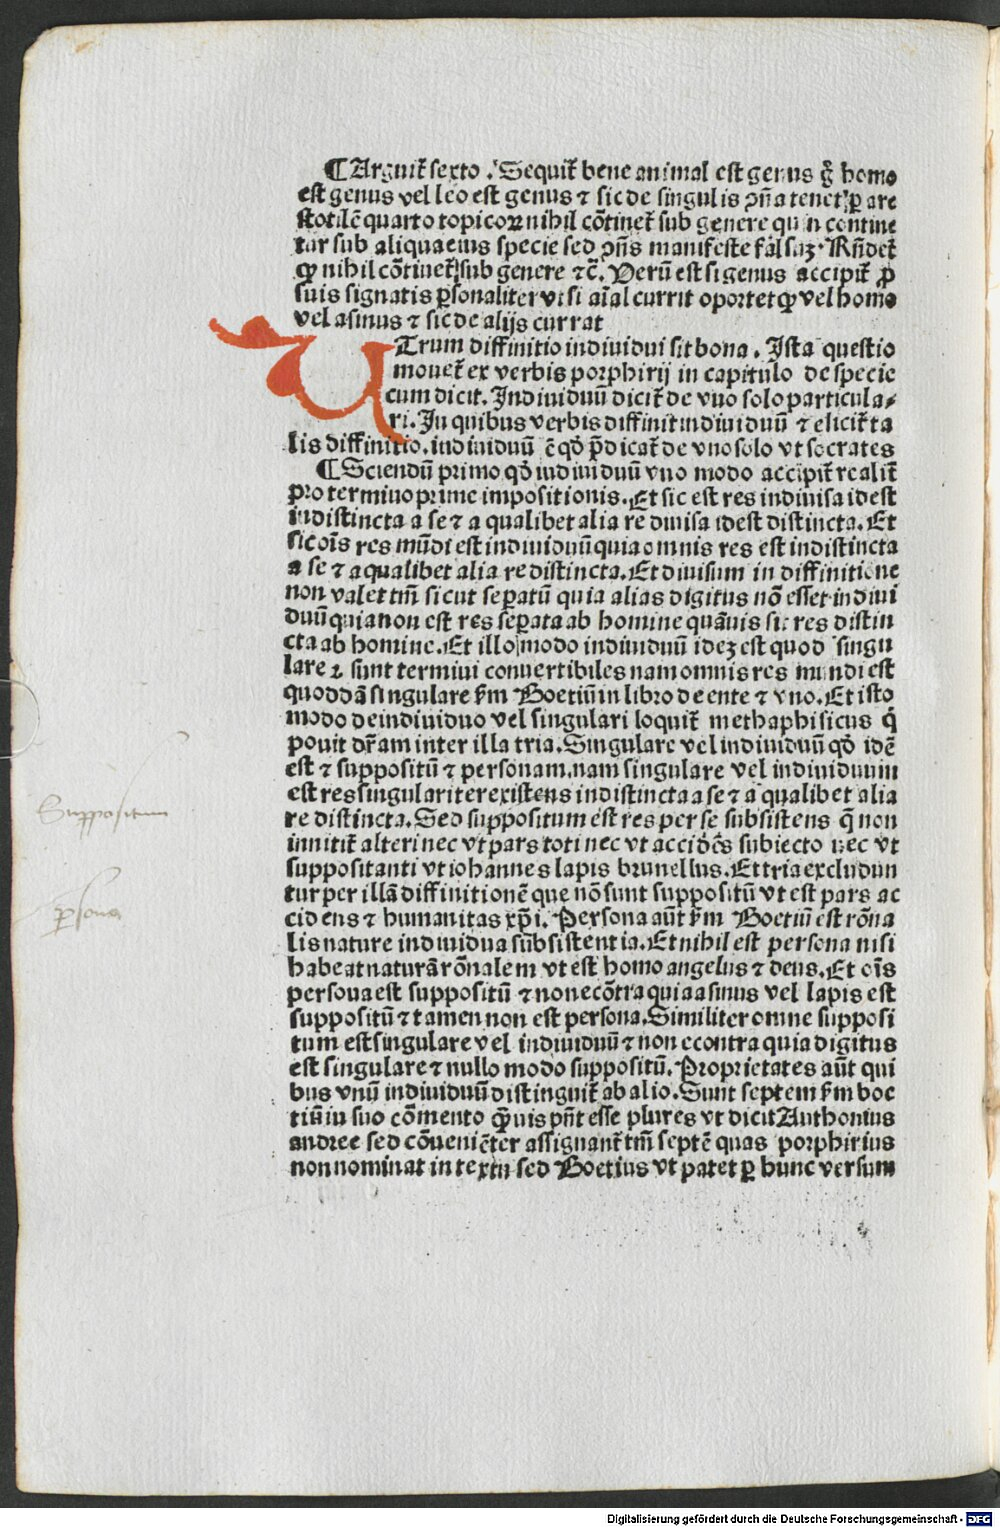 ¶ Arguit᷑ sexto. Sequit᷑ bene animal est genus g̊ homo
est genus vel leo est genus ⁊ sic de singulis ꝯña tenet ꝑ are
stotilē quarto topicoꝝ nihil cōtinet᷑ sub genere quin contine
tur sub aliqua eius specie sed ꝯñs manifeste falsuꝫ. Rñdet᷑
ꝙ nihil cōtinet᷑ sub genere ⁊c̄. Verū est si genus accipit᷑ ꝓ
suis signatis ꝑsonaliter vt si aīal currit oportet ꝙ vel homo
vel asinus ⁊ sic de alijs currat
UTrum diffinitio indiuidui sit bona. Ista questio
mouet᷑ ex verbis porphirij in capitulo de specie
cum dicit. Indiuiduū dicit᷑ de vno solo particula⸗
ri. In quibus verbis diffinit indiuiduū ⁊ elicit᷑ ta
lis diffinitio. indiuiduū ē qd̛ p̄dicat᷑ de vno solo vt socrates
¶ Sciendū primo qd̛ indiuiduū vno modo accipit᷑ realit᷑
pro termino prime impositionis. Et sic est res indiuisa idest
indistincta a se ⁊ a qualibet alia re diuisa idest distincta. Et
sic oīs res mūdi est indiuiduū quia omnis res est indistincta
a se ⁊ a qualibet alia re distincta. Et diuisum in diffinitione
non valet tm̄ sicut seꝑatū quia alias digitus nō esset indiui
duū quia non est res seꝑata ab homine quāuis sit res distin
cta ab homine. Et illo modo indiuiduū ideꝫ est quod singu
lare ⁊ sunt termini conuertibiles nam omnis res mundi est
quoddā singulare ẜm Boetiū in libro de ente ⁊ vno. Et isto
modo de indiuiduo vel singulari loquit᷑ methaphisicus q̇
ponit dr̄am inter illa tria. Singulare vel indiuiduū qd̛ idē
est ⁊ suppositū ⁊ personam. nam singulare vel indiuiduum
est res singulariter existens indistincta a se ⁊ a qualibet alia
re distincta. Sed suppositum est res per se subsistens q̄ non
innitit᷑ alteri nec vt pars toti nec vt accidēs subiecto nec vt
suppositanti vt iohannes lapis brunellus. Et tria excludun
tur per illā diffinitionē que nō sunt suppositū vt est pars ac
cidens ⁊ humanitas xp̄i. Persona aūt ẜm Boetiū est rōna
lis nature indiuidua subsistentia. Et nihil est persona nisi
habeat naturā rōnalem vt est homo angelus ⁊ deus. Et oīs
persona est suppositū ⁊ non ecōtra quia asinus vel lapis est
suppositū ⁊ tamen non est persona. Similiter omne supposi
tum est singulare vel indiuiduū ⁊ non econtra quia digitus
est singulare ⁊ nullo modo suppositū. Proprietates aūt qui
bus vnū indiuiduū distinguit᷑ ab alio. Sunt septem ẜm boe
tiū in suo cōmento q̄uis pn̄t esse plures vt dicit Anthonius
andree sed cōueniēter assignant᷑ tm̄ septē quas porphirius
non nominat in textu sed Boetius vt patet ꝑ hunc versum
Suppositum
ꝑsona
Digitalisierung gefördert durch die Deutsche Forschungsgemeinschaft - DFG